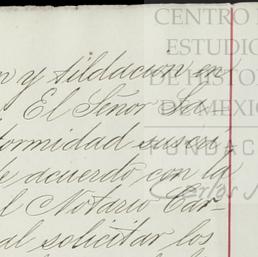 CENTRO
ESTUDIO
DE HISTOR
DE MEXIC
FUNDAC
n y tildacion en
El Señor Se-
formidad suscri,
de acuerdo con la
Carlos S
el Notario Car-
al solicitar los